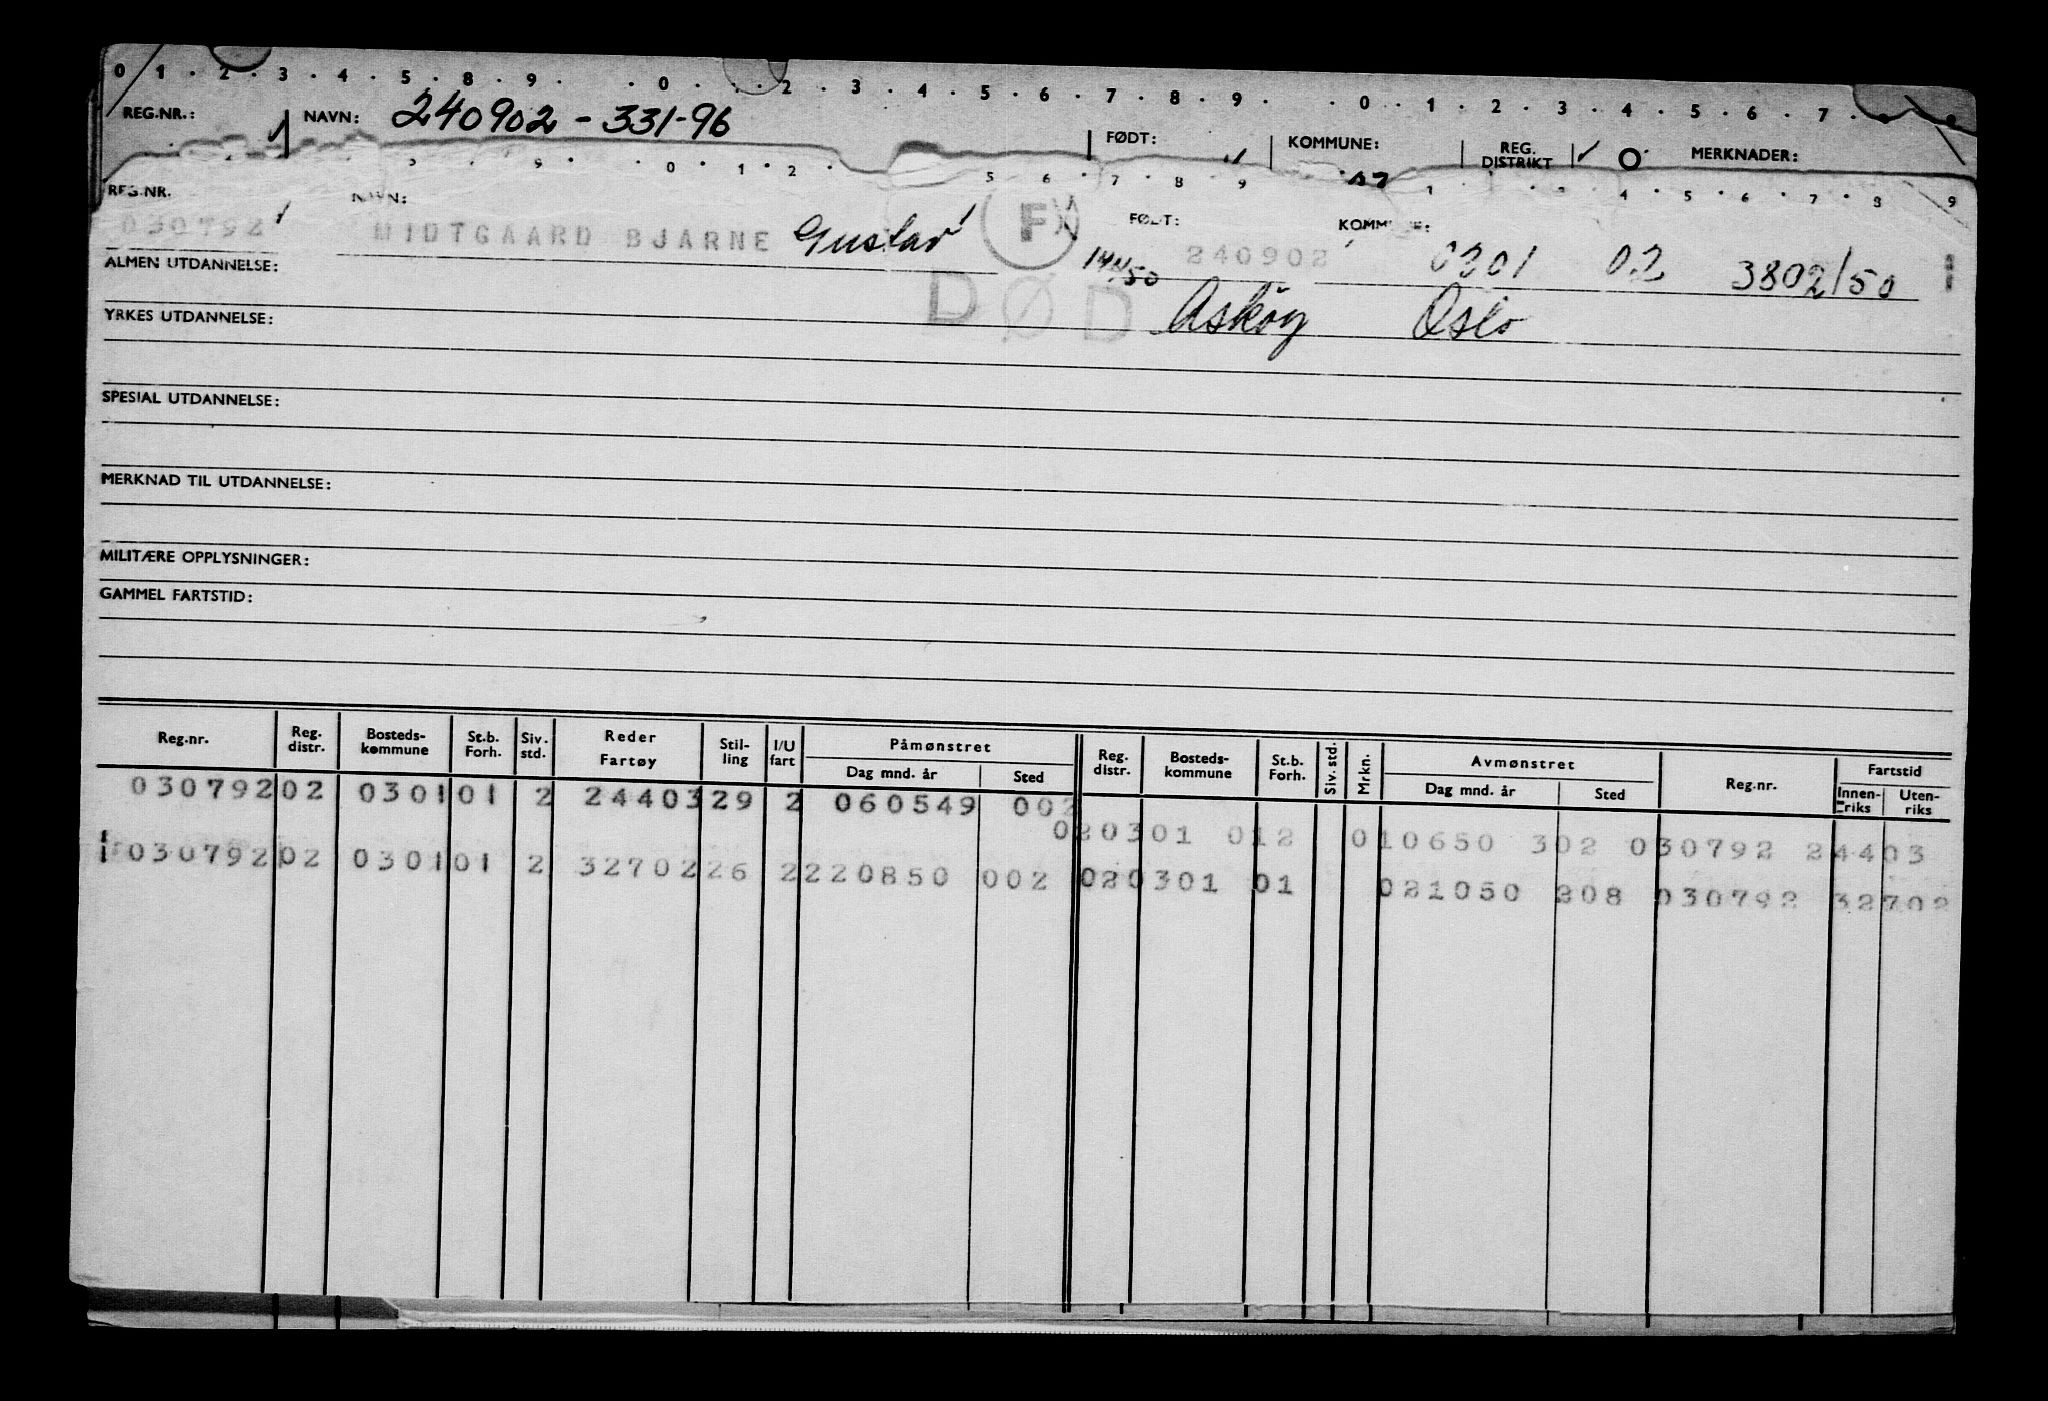 0 1 · 2 · 3 · 4 · 5 · 8 · 9 · · 0 · · 2 · 3 · 4 · 5 · 6 · 7 · 8 · 9 · · 0 · 1 · 2 · 3 · 4 · 5 · 6 · 7 ·
REG.NR.: NAVN: 240902-331-96 FØDT: KOMMUNE: REG. DISTRIKT O MERKNADER:
9 · 0 · 1 · 2 · 5 6 · 7 · 8 · 9 1 · 4 · 5 · 6 · 7 · 8 9
REG.NR. NAVN: FØDT: KOMMUNE:
030792 MIDTGAARD BJARNE Gustav F 240902 0301 02 3802/50
ALMEN UTDANNELSE:
DØD Askøy Oslo
YRKES UTDANNELSE:
SPESIAL UTDANNELSE:
MERKNAD TIL UTDANNELSE:
MILITÆRE OPPLYSNINGER:
GAMMEL FARTSTID:
Reg.nr. Reg. distr. Bosteds- kommune St.b. Forh. Siv. std. Reder Fartøy Stil- ling I/U fart Påmønstret Dag mnd. år Sted Reg. distr. Bosteds- kommune St.b. Forh. Siv. std. Mrkn. Avmønstret Dag mnd. år Sted Reg.nr. Fartstid Innen- riks Uten- riks
030792 02 0301 01 2 24403 29 2 060549 002
020301 012 010650 302 030792 24403
030792 02 0301 01 2 32702 26 2 220850 002 020301 01 021050 208 030792 32702